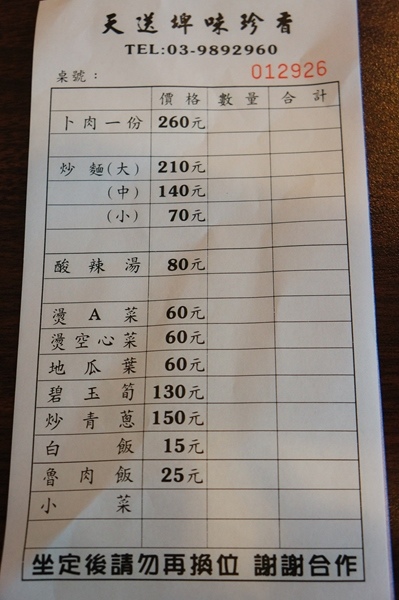 天送埤味珍香
TEL:03-9892960
桌號： 012926
價格 數量 合計
卜肉一份 260元
炒麵(大) 210元
(中) 140元
(小) 70元
酸辣湯 80元
燙A菜 60元
燙空心菜 60元
地瓜葉 60元
碧玉筍 130元
炒青蔥 150元
白飯 15元
魯肉飯 25元
小菜
坐定後請勿再換位 謝謝合作